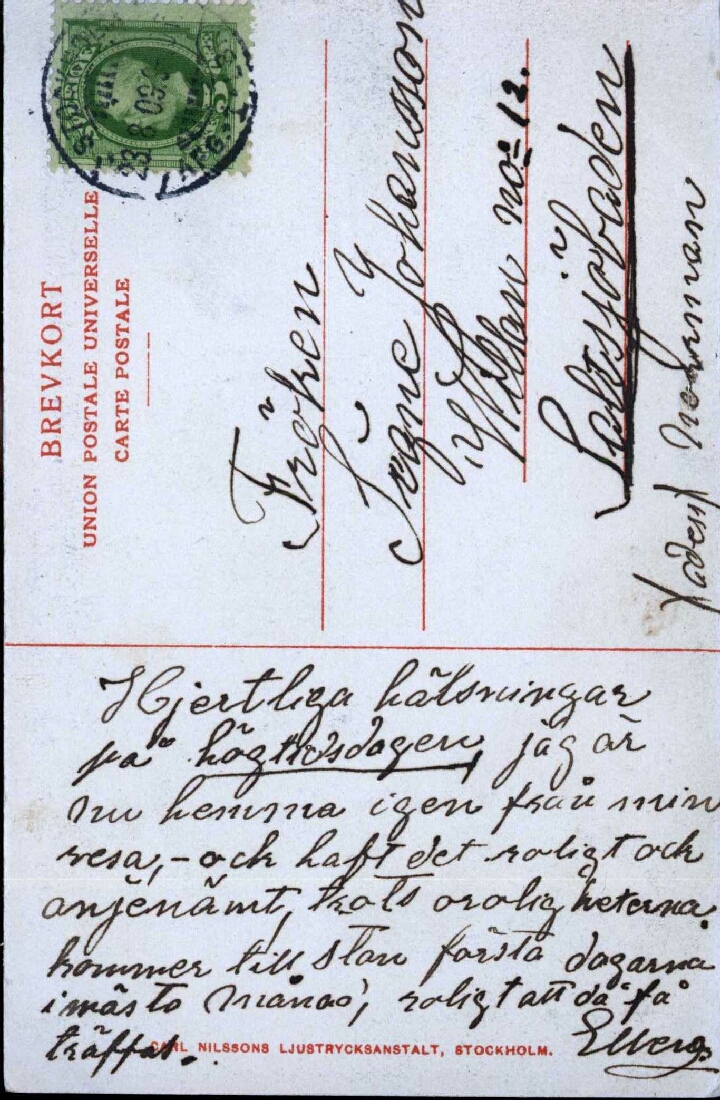 BREVKORT
UNION POSTALE UNIVERSELLE
CARTE POSTALE
Fröken
Signe Johansson
Willan no 12.
Saltsjöbaden
Hjertliga hälsningar
på högtidsdagen, jag är
nu hemma igen från min
resa, - och haft det roligt och
anjenämt, trots oroligheterna.
kommer till stan första dagarna
i nästa månad, roligt att då få
träffas.
CARL NILSSONS LJUSTRYCKSANSTALT, STOCKHOLM.